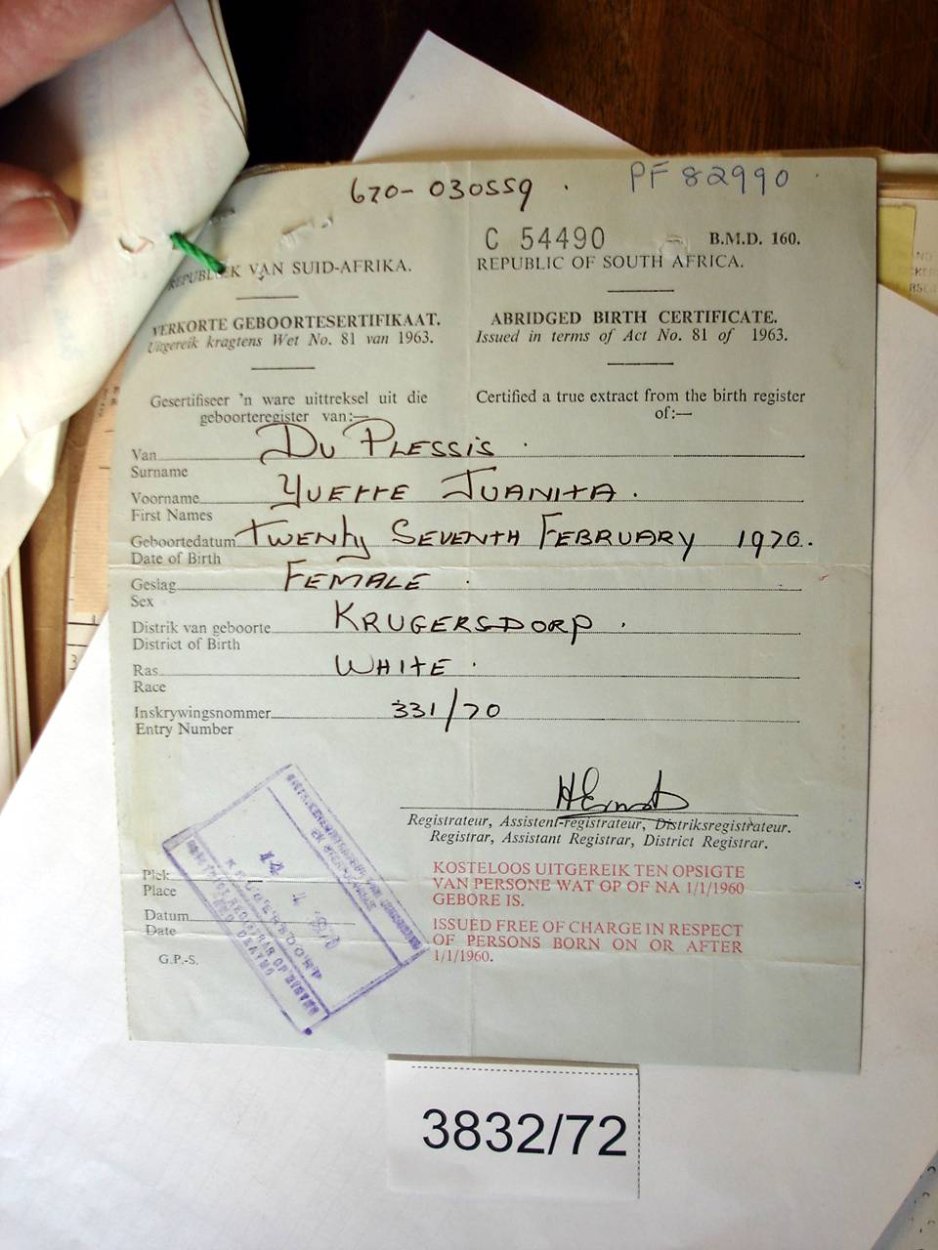 670-030559 .
PF 82990
C 54490
B.M.D. 160.
VAN SUID-AFRIKA.
REPUBLIC OF SOUTH AFRICA.
VERKORTE GEBOORTESERTIFIKAAT.
Uitgereik kragtens Wet No. 81 van 1963.
ABRIDGED BIRTH CERTIFICATE.
Issued in terms of Act No. 81 of 1963.
Gesertifiseer 'n ware uittreksel uit die
geboorteregister van:—
Certified a true extract from the birth register
of:—
Van DU PLESSIS .
Surname
Voorname YVETTE JUANITA.
First Names
Geboortedatum TWENTY SEVENTH FEBRUARY 1970.
Date of Birth
Geslag FEMALE .
Sex
Distrik van geboorte KRUGERSDORP .
District of Birth
Ras WHITE .
Race
Inskrywingsnommer 331/70
Entry Number
Registrateur, Assistent-registrateur, Distriksregistrateur.
Registrar, Assistant Registrar, District Registrar.
KOSTELOOS UITGEREIK TEN OPSIGTE
VAN PERSONE WAT OP OF NA 1/1/1960
GEBORE IS.
ISSUED FREE OF CHARGE IN RESPECT
OF PERSONS BORN ON OR AFTER
1/1/1960.
Plek
Place
Datum
Date
G.P.-S.
3832/72